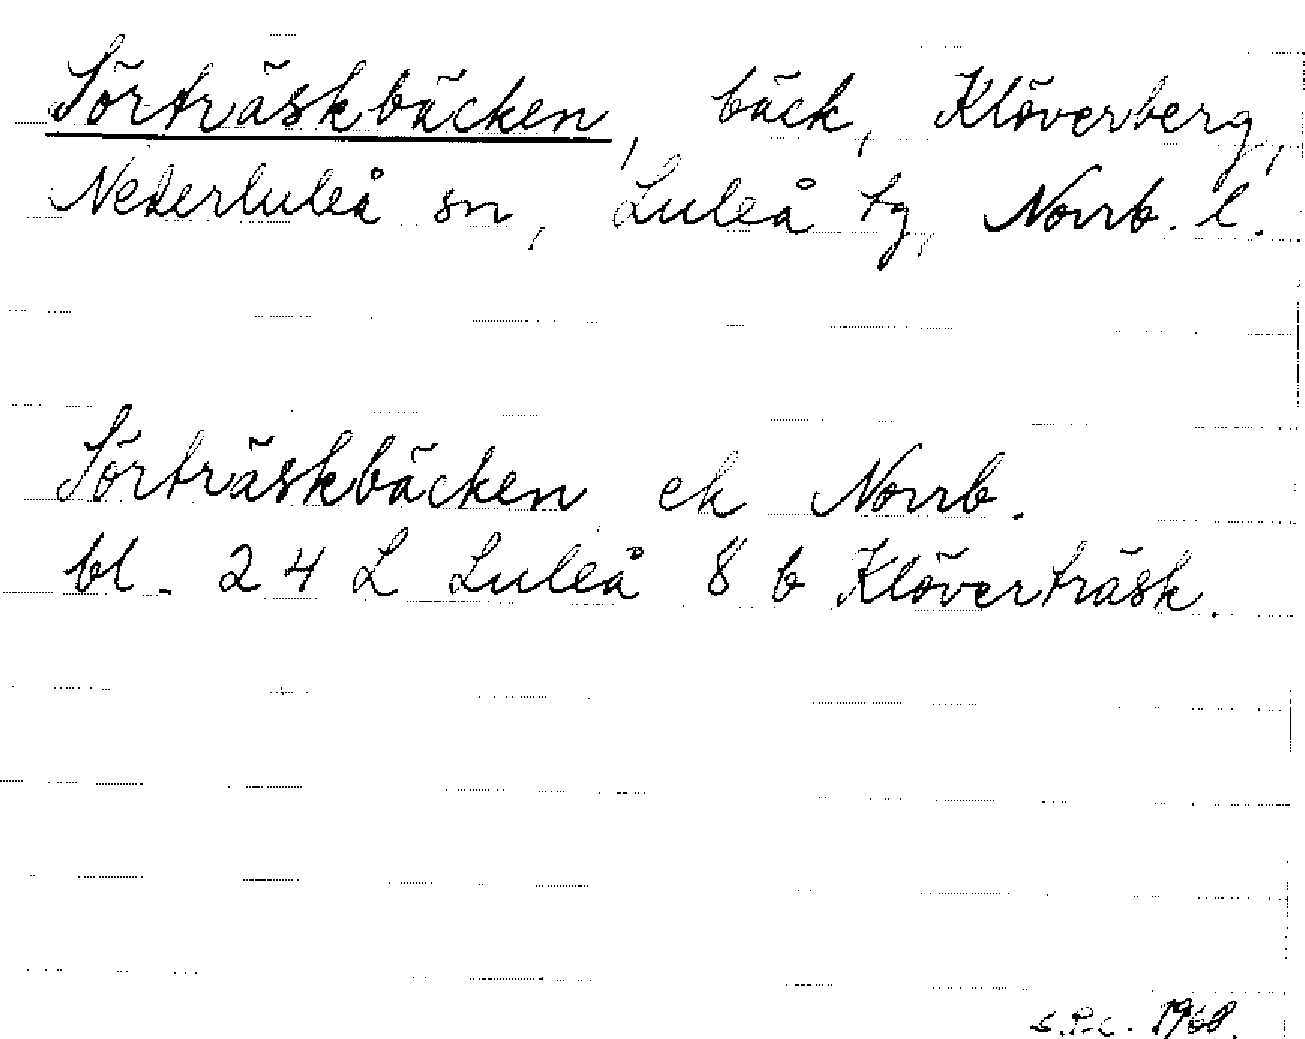 Sörträskbäcken, bäck, Klöverberg,
Nederluleå sn, Luleå tg, Norrb. l.
Sörträskbäcken ek Norrb.
bl. 24 L Luleå 8 b Klöverträsk.
1968.